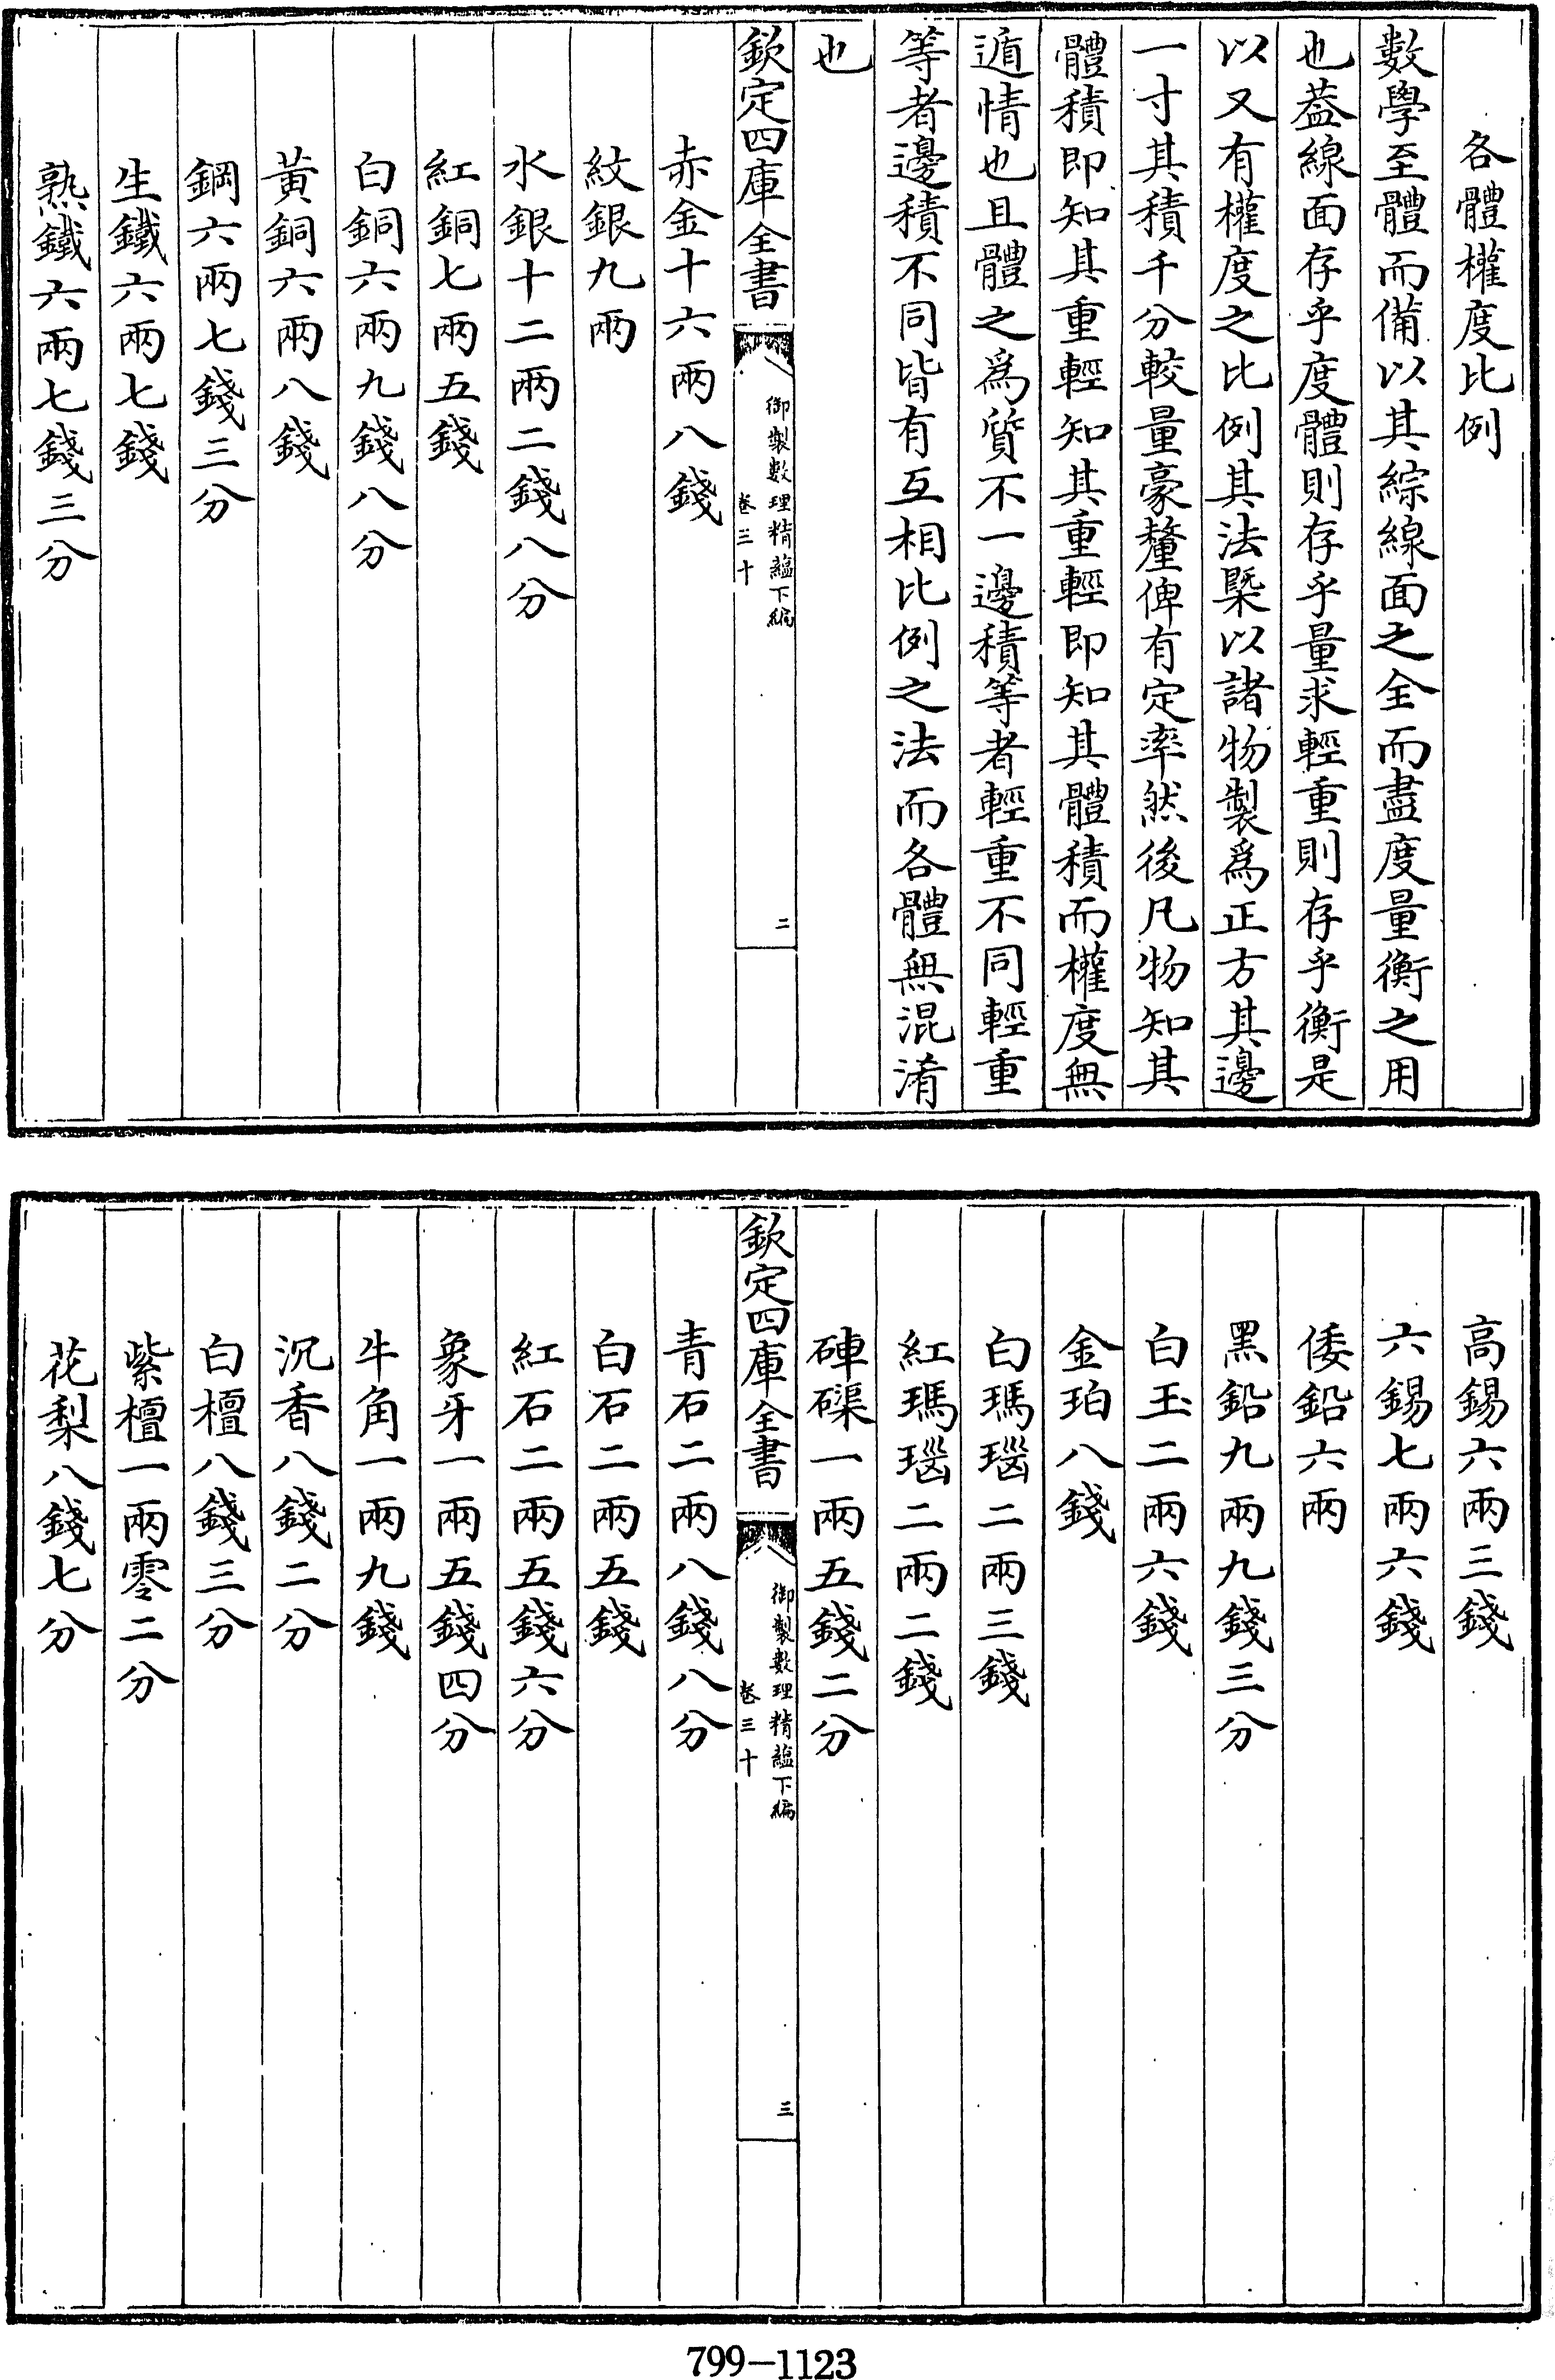 各體權度比例
數學至體而備以其綜線面之全而盡度量衡之用
也葢線面存乎度體則存乎量求輕重則存乎衡是
以又有權度之比例其法槩以諸物製爲正方其邊
一寸其積千分較量豪釐俾有定率然後凡物知其
體積即知其重輕知其重輕即知其體積而權度無
遁情也且體之爲質不一邊積等者輕重不同輕重
等者邊積不同皆有互相比例之法而各體無混淆
也
欽定四庫全書
御製數理精藴下編
卷三十
二
赤金十六兩八錢
紋銀九兩
水銀十二兩二錢八分
紅銅七兩五錢
白銅六兩九錢八分
黃銅六兩八錢
鋼六兩七錢三分
生鐵六兩七錢
熟鐵六兩七錢三分
高錫六兩三錢
六錫七兩六錢
倭鉛六兩
黑鉛九兩九錢三分
白玉二兩六錢
金珀八錢
白瑪瑙二兩三錢
紅瑪瑙二兩二錢
硨磲一兩五錢二分
欽定四庫全書
御製數理精藴下編
卷三十
三
青石二兩八錢八分
白石二兩五錢
紅石二兩五錢六分
象牙一兩五錢四分
牛角一兩九錢
沉香八錢二分
白檀八錢三分
紫檀一兩零二分
花梨八錢七分
799-1123